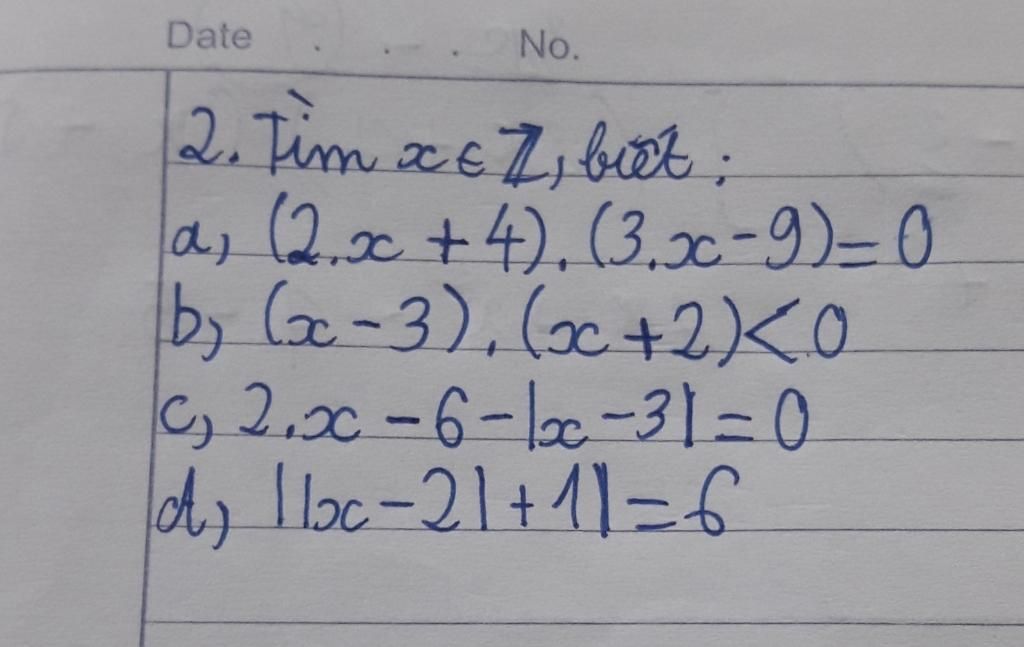 Date . . . No.
2. Tìm x ∈ ℤ, biết:
a, (2.x + 4). (3.x - 9) = 0
b, (x - 3). (x + 2) < 0
c, 2.x - 6 - |x - 3| = 0
d, ||x - 2| + 1| = 6